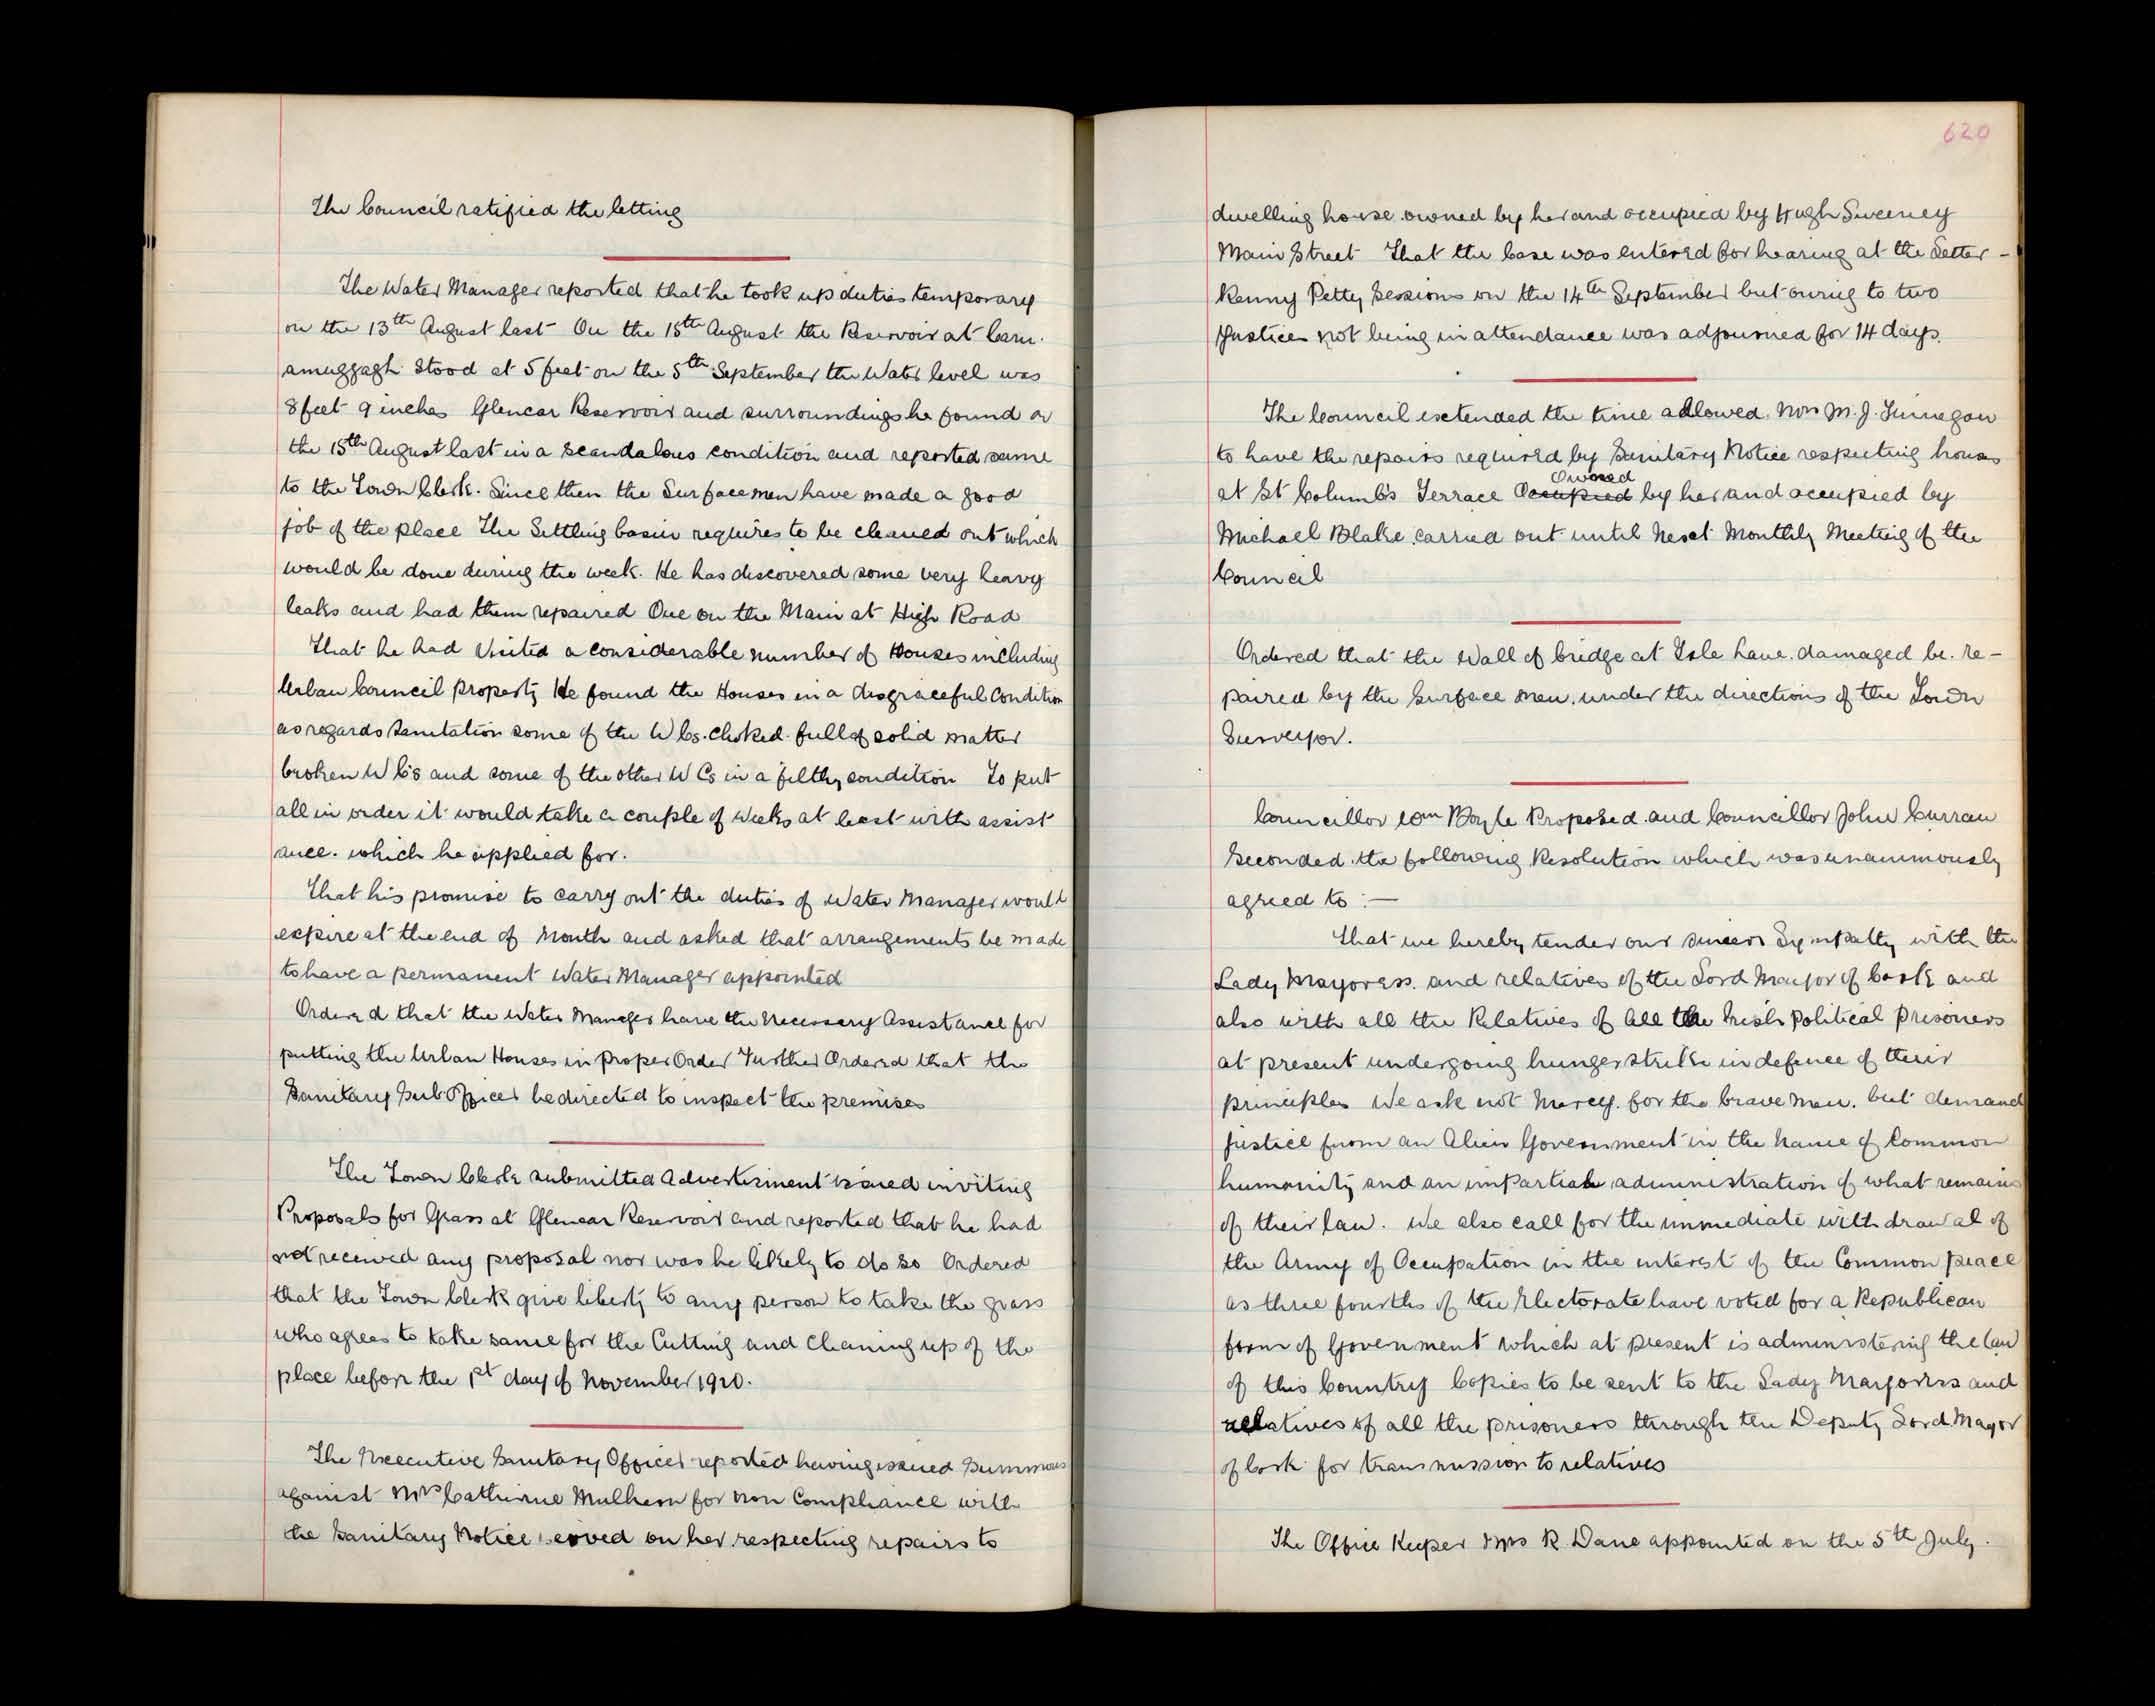 The Council ratified the letting
The Water Manager reported that he took up duties temporary
on the 13th August last On the 15th August the Reservoir at Carn-
amuggagh Stood at 5 feet on the 5th September the Water level was
8 feet 9 inches Glencar Reservoir and surroundings he found on
the 15th August last in a scandalous condition and reported same
to the Town Clerk. Since then the Surfacemen have made a good
job of the place The Settling basin requires to be cleaned out which
would be done during the week. He has discovered some very heavy
leaks and had them repaired One on the Main at High Road
That he had Visited a considerable number of Houses including
Urban Council property He found the Houses in a disgraceful Condition
as regards Sanitation some of the W Cs. choked full of solid matter
broken W C's and some of the other W Cs in a filthy condition To put
all in order it would take a couple of weeks at least with assist
ance. which he applied for.
That his promise to carry out the duties of Water Manager would
expire at the end of Month and asked that arrangements be made
to have a permanent Water Manager appointed
Ordered that the Water Manager have the necessary Assistance for
putting the Urban Houses in proper Order Further Ordered that the
Sanitary Sub Officer be directed to inspect the premises
The Town Clerk submitted Advertisment issued inviting
Proposals for Grass at Glencar Reservoir and reported that he had
not received any proposal nor was he likely to do so Ordered
that the Town Clerk give liberty to any person to take the grass
who agrees to take same for the Cutting and Cleaning up of the
place before the 1st day of November 1920.
The Executive Sanitary Officer reported having issued Summons
against Mrs Catherine Mulhern for non Compliance with
the Sanitary Notice served on her respecting repairs to
620
dwelling house owned by her and occupied by Hugh Sweeney
Main Street That the Case was entered for hearing at the Letter-
kenny Petty Sessions on the 14th September but owing to two
Justices not being in attendance was adjourned for 14 days.
The Council extended the time allowed Mrs M. J. Finnegan
to have the repairs required by Sanitary Notice respecting houses
Owned
at St Columb's Terrace Occupied by her and occupied by
Michael Blake carried out until Next Monthly Meeting of the
Council
Ordered that the Wall of bridge at Isle Lane damaged be re-
paired by the Surface men under the directions of the Town
Surveyor.
Councillor Wm Boyle Proposed and Councillor John Curran
Seconded the following Resolution which was unanimously
agreed to :—
That we hereby tender our sincere Sympathy with the
Lady Mayoress and relatives of the Lord Mayor of Cork and
also with all the Relatives of all the Irish Political Prisoners
at present undergoing hungerstrike in defence of their
principles We ask not Mercy for the brave men. but demand
justice from an Alien Government in the name of Common
humanity and an impartial administration of what remains
of their law. We also call for the immediate withdrawal of
the Army of Occupation in the interest of the Common peace
as three fourths of the Electorate have voted for a Republican
form of Government which at present is administering the law
of this Country Copies to be sent to the Lady Mayoress and
relatives of all the prisoners through the Deputy Lord Mayor
of Cork for transmission to relatives
The Office Keeper Mrs R Dane appointed on the 5th July.